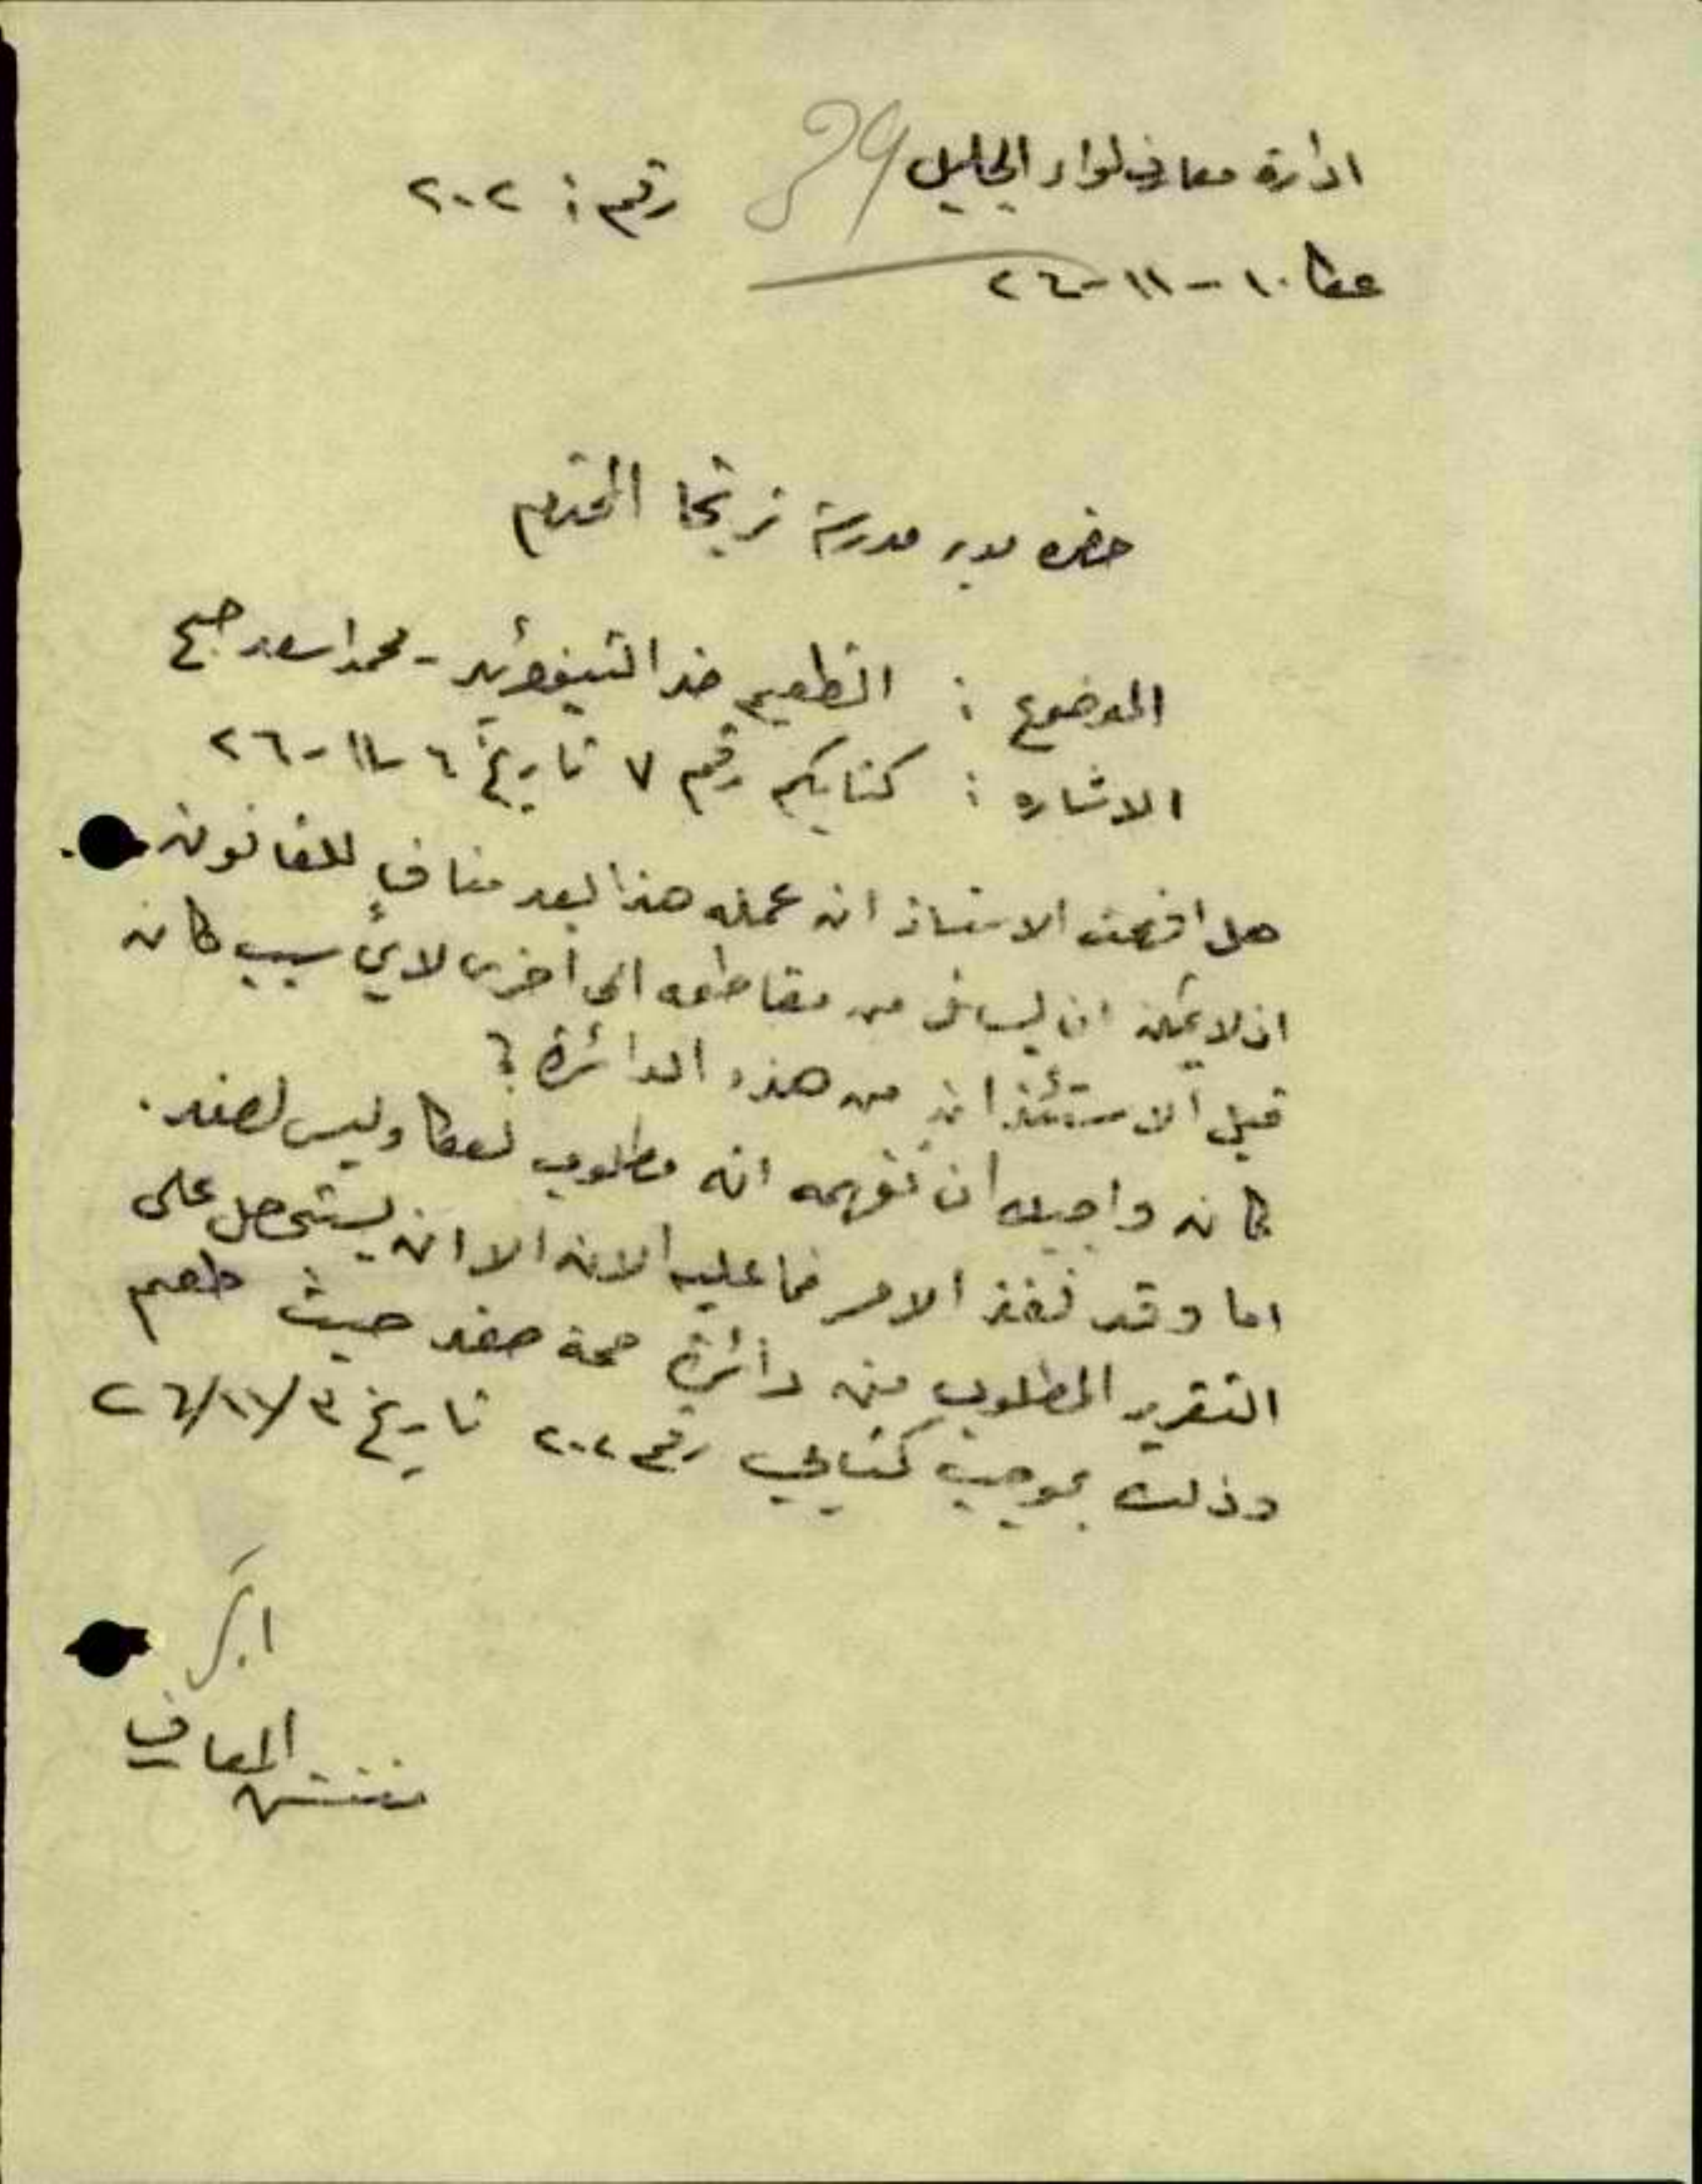 ادارة معارف لواء الجليل 39 رقم : ٢٠٢
عكا ١٠-١١-٢٦
حضرة مدير مدرسة ترشيحا المحترم
الموضوع : التطعيم ضد التيفوئيد - محمد اسعد صبح
الاشارة : كتابكم رقم ٧ تاريخ ٦-١١-٢٦
هل افهمت الاستاذ ان عمله هذا يعد مناف للقانون .
اذ لا يمكنه ان يسافر من مقاطعه الى أخرى لايّ سبب كان
قبل الاستئذان من هذه الدائرة ؟
كان واجبك ان تفهمه انه مطلوب لعكا وليس لصفد .
اما وقد نفذ الامر فما عليه الان الا ان يستحصل على
التقرير المطلوب من دائرة صحة صفد حيث طعم
وذلك بموجب كتابي رقم ٢٠٢ تاريخ ٣/١١/٢٦
مفتش المعارف